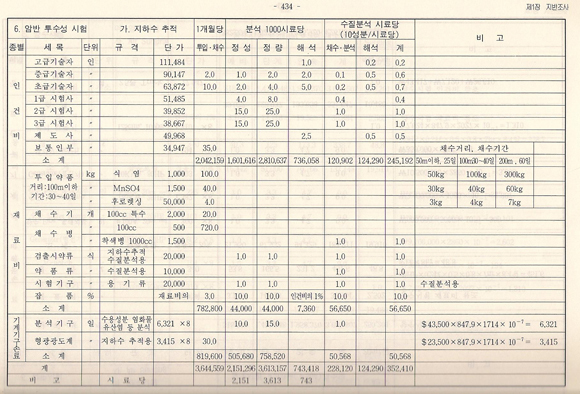 - 434 -
제1장 지반조사
6. 암반 투수성 시험 가. 지하수 추적 1개월당 분석 1000시료당 수질분석 시료당 비 고
(10성분/시료당)
종별 세 목 단위 규 격 단 가 투입·채수 정 성 정 량 해 석 채수·분석 해석 계
인건비
고급기술자 인 111,484 1.0 0.2 0.2
중급기술자 〃 90,147 2.0 1.0 2.0 2.0 0.1 0.5 0.6
초급기술자 〃 63,872 10.0 2.0 4.0 5.0 0.2 0.5 0.7
1급 시험사 〃 51,485 4.0 8.0 0.4 0.4
2급 시험사 〃 39,852 15.0 25.0 1.0 1.0
3급 시험사 〃 38,667 15.0 25.0 1.0 1.0
제 도 사 〃 49,968 2.5 0.5 0.5
보 통 인 부 〃 34,947 35.0 채수거리, 채수기간
소 계 2,042,159 1,601,616 2,810,637 736,058 120,902 124,290 245,192 50m이하, 25일 100m30~40일 200m, 60일
재료비
투 입 약 품 kg 식 염 1,000 100.0 50kg 100kg 300kg
거리:100m이하 〃 MnSO4 1,500 40.0 30kg 40kg 60kg
기간:30~40일 〃 후로렛싱 50,000 4.0 3kg 4kg 7kg
채 수 기 개 100cc 특수 2,000 20.0
채 수 병 〃 100cc 500 720.0
〃 착색병 1000cc 1,500 1.0 1.0
검출시약류 식 지하수추적 수질분석용 20,000 1.0 1.0 1.0 1.0
약 품 류 〃 수질분석용 10,000 1.0 1.0
시 험 기 구 〃 용 기 류 20,000 1.0 1.0 1.0 1.0 수질분석용
잡 품 % 재료비의 3.0 10.0 10.0 인건비의 1% 10.0 10.0
소 계 782,800 44,000 44,000 7,360 56,650 56,650
기계기구손료
분 석 기 구 일 수용성분 염화물 유산염 등 분석 6,321 ×8 10.0 15.0 1.0 $43,500×847.9×1714×10⁻⁷= 6,321
형광광도계 〃 지하수 추적용 3,415 ×8 30.0 $23,500×847.9×1714×10⁻⁷= 3,415
소 계 819,600 505,680 758,520 50,568 50,568
계 3,644,559 2,151,296 3,613,157 743,418 228,120 124,290 352,410
비 고 시 료 당 2,151 3,613 743